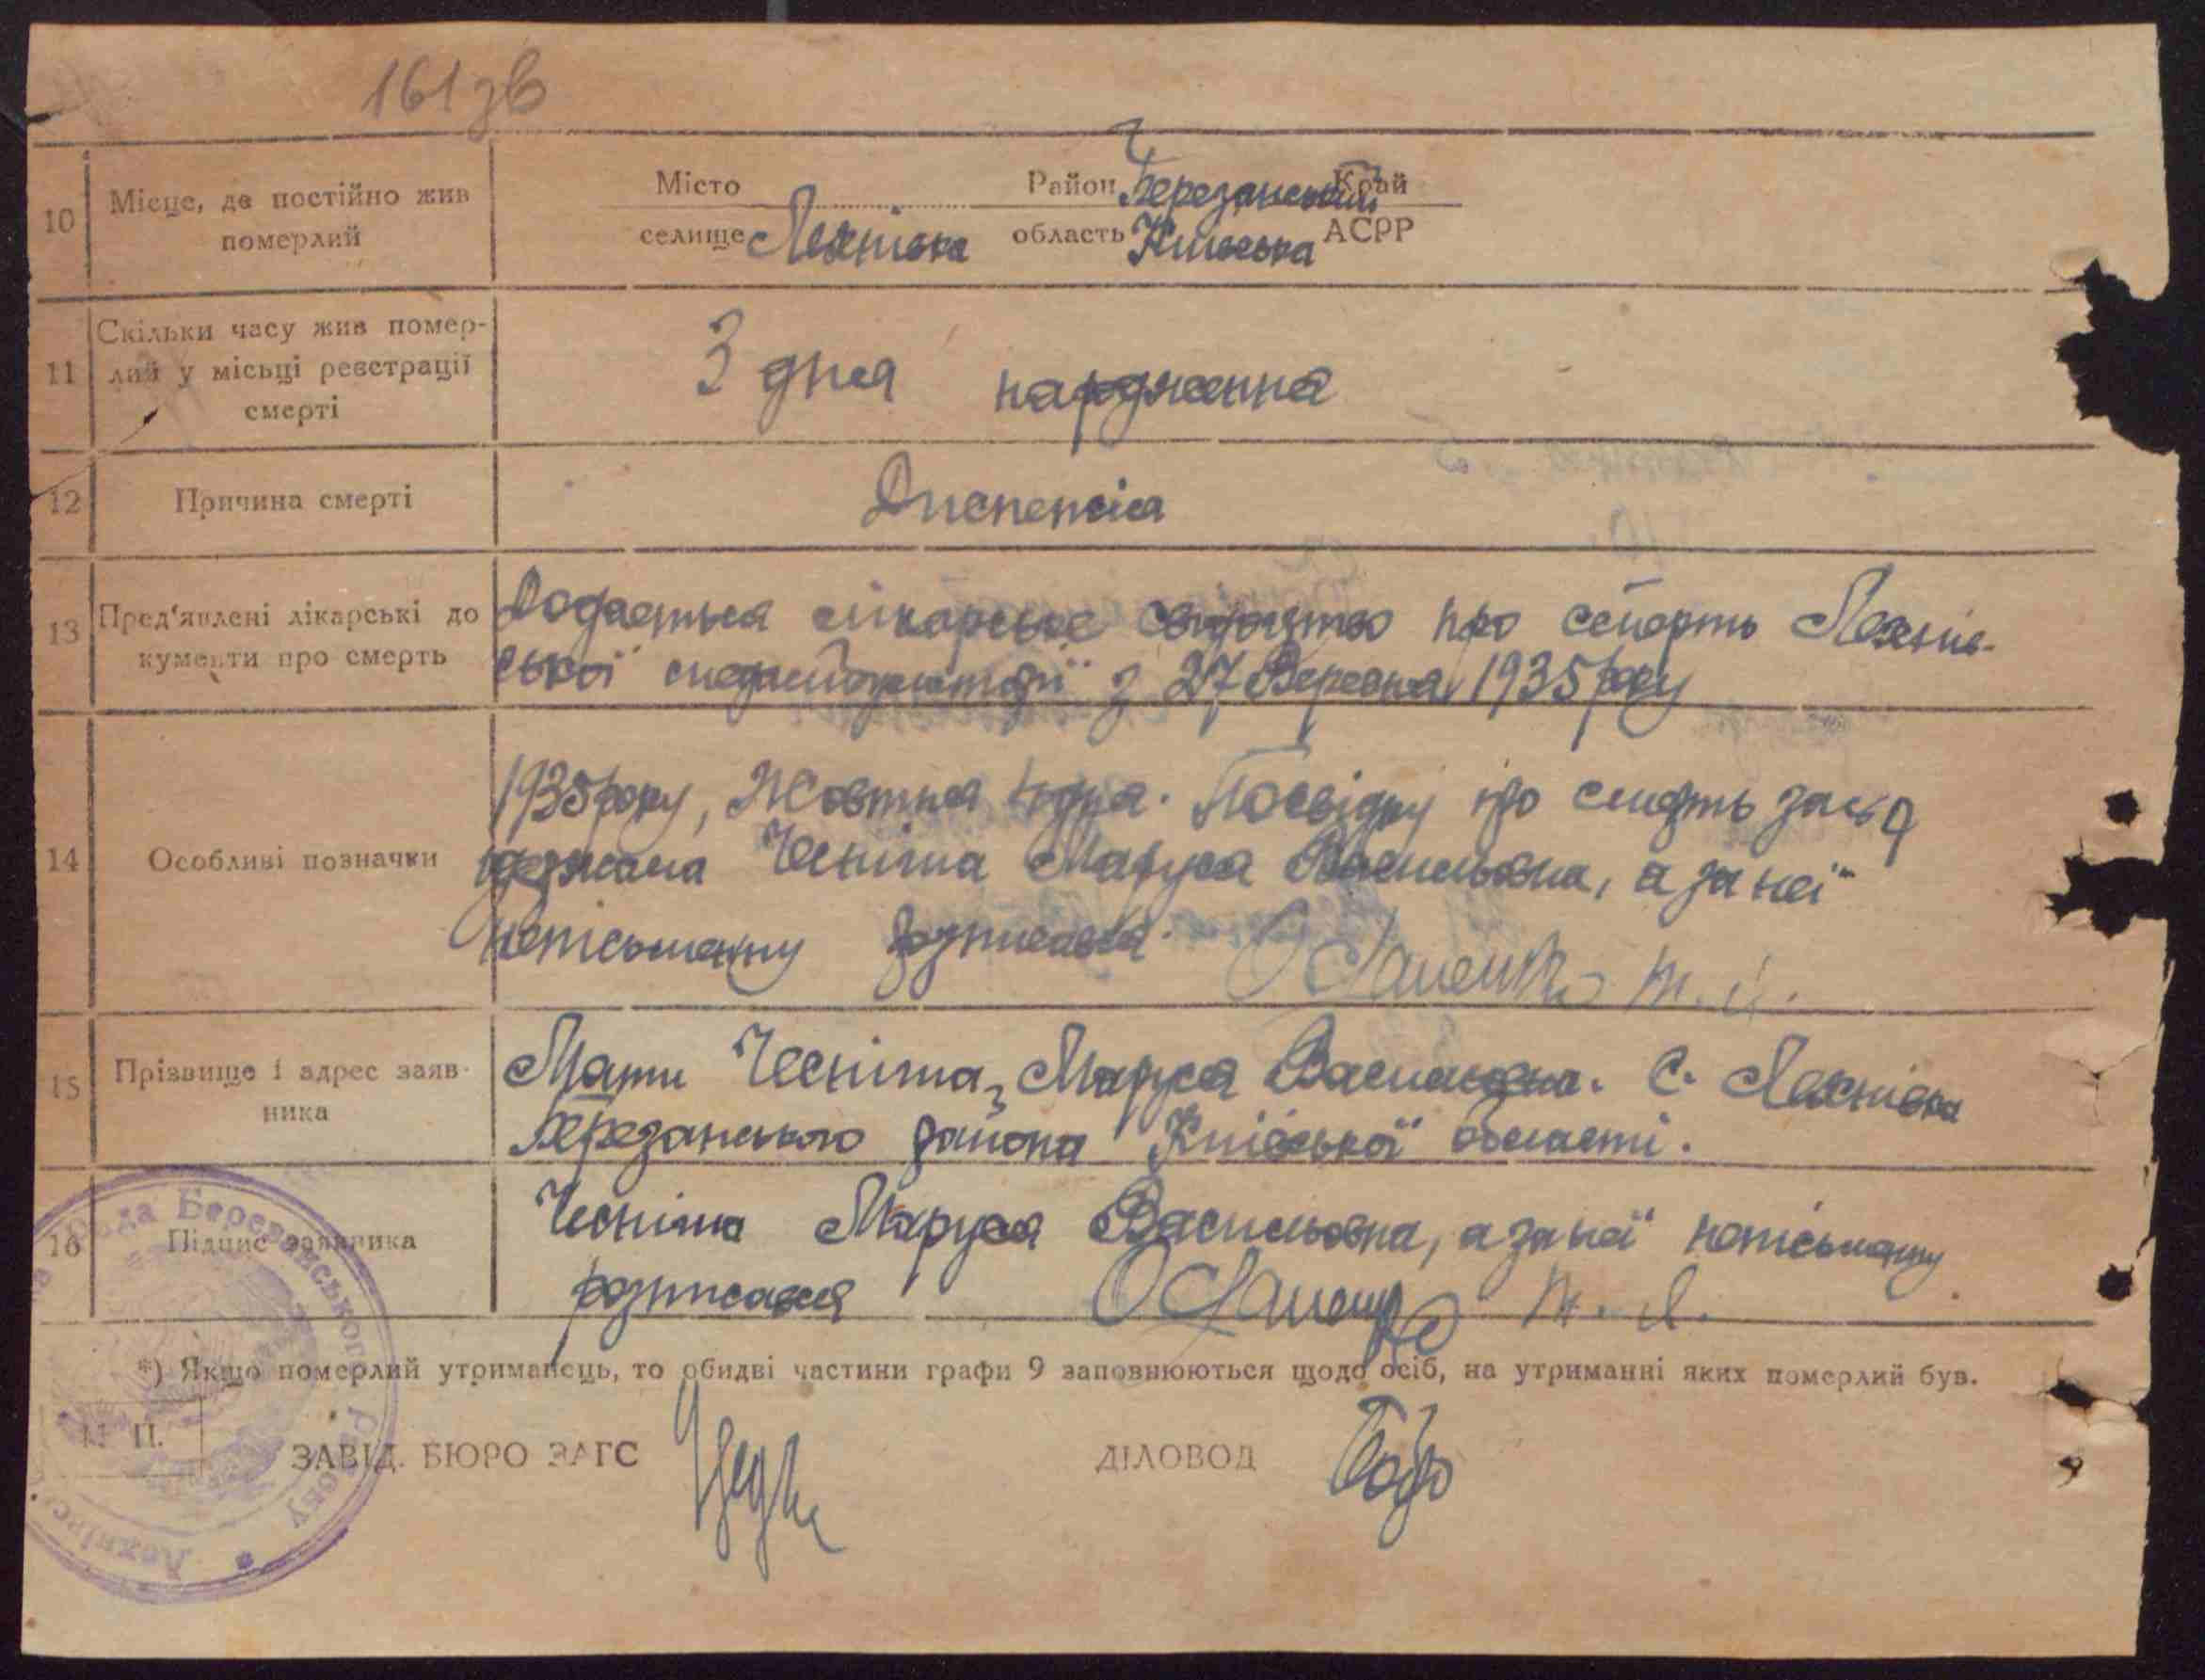 161зв
10 Місце, де постійно жив
померлий
Місто Район Березанський Край
селище Лехнівка область Київська АСРР
11 Скільки часу жив помер-
лий у місьці реєстрації
смерті
З дня народження
12 Причина смерті
Диспепсія
13 Пред'явлені лікарські до
кументи про смерть
Додається лікарське свідоцтво про смерть Лехнів-
ської з 27 Вересня 1935 року
14 Особливі позначки
1935 року, Жовтня дня. Посвідку про смерть
Маруся Васильовна, а за неї
непісьменну розписався
15 Прізвище і адрес заяв-
ника
Мати Маруся Васильовна. С. Лехнівка
Березанського района Київської области.
16 Підпис заявника
Маруся Васильовна, а за неї непісьменну
розписався
*) Якщо померлий утриманець, то обидві частини графи 9 заповнюються щодо осіб, на утриманні яких померлий був.
М. П.
ЗАВІД. БЮРО ЗАГС ДІЛОВОД
Рада Березанського Району